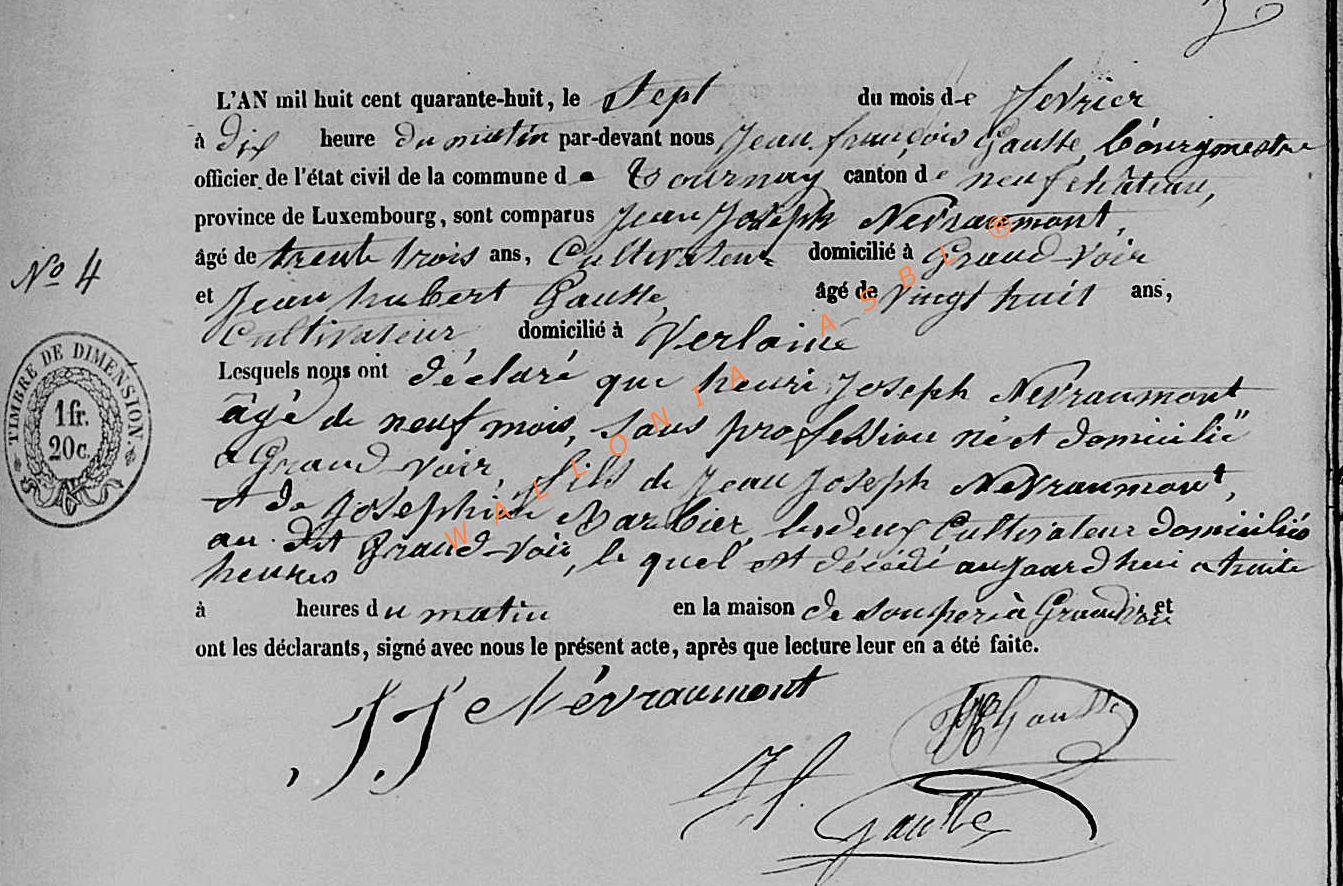 L'AN mil huit cent quarante-huit, le Sept du mois de fevrier
à dix heure du matin par-devant nous Jean françois Gausse, bourgmestre
officier de l'état civil de la commune de Tournay canton de neufchâteau,
province de Luxembourg, sont comparus Jean Joseph Nevraumont,
âgé de trente trois ans, Cultivateur domicilié à Grand-voir
No 4
et Jean hubert Gausse, âgé de vingt huit ans,
Cultivateur, domicilié à Verlaine
Lesquels nous ont déclaré que henri Joseph Nevraumont
âgé de neuf mois, sans profession né et domicilié
a Grand-voir, fils de Jean Joseph Nevraumont,
et de Josephine Barbier, les deux Cultivateur domiciliés
au dit Grand-voir, le quel est décédé aujourdhui a
heures
à heures du matin en la maison de son pere à Grandvoir et
ont les déclarants, signé avec nous le présent acte, après que lecture leur en a été faite.
TIMBRE DE DIMENSION.
1 fr.
20 c.
WALLONIA ASBL ®
JJ Névraumont
Gausse
J f.
Gausse